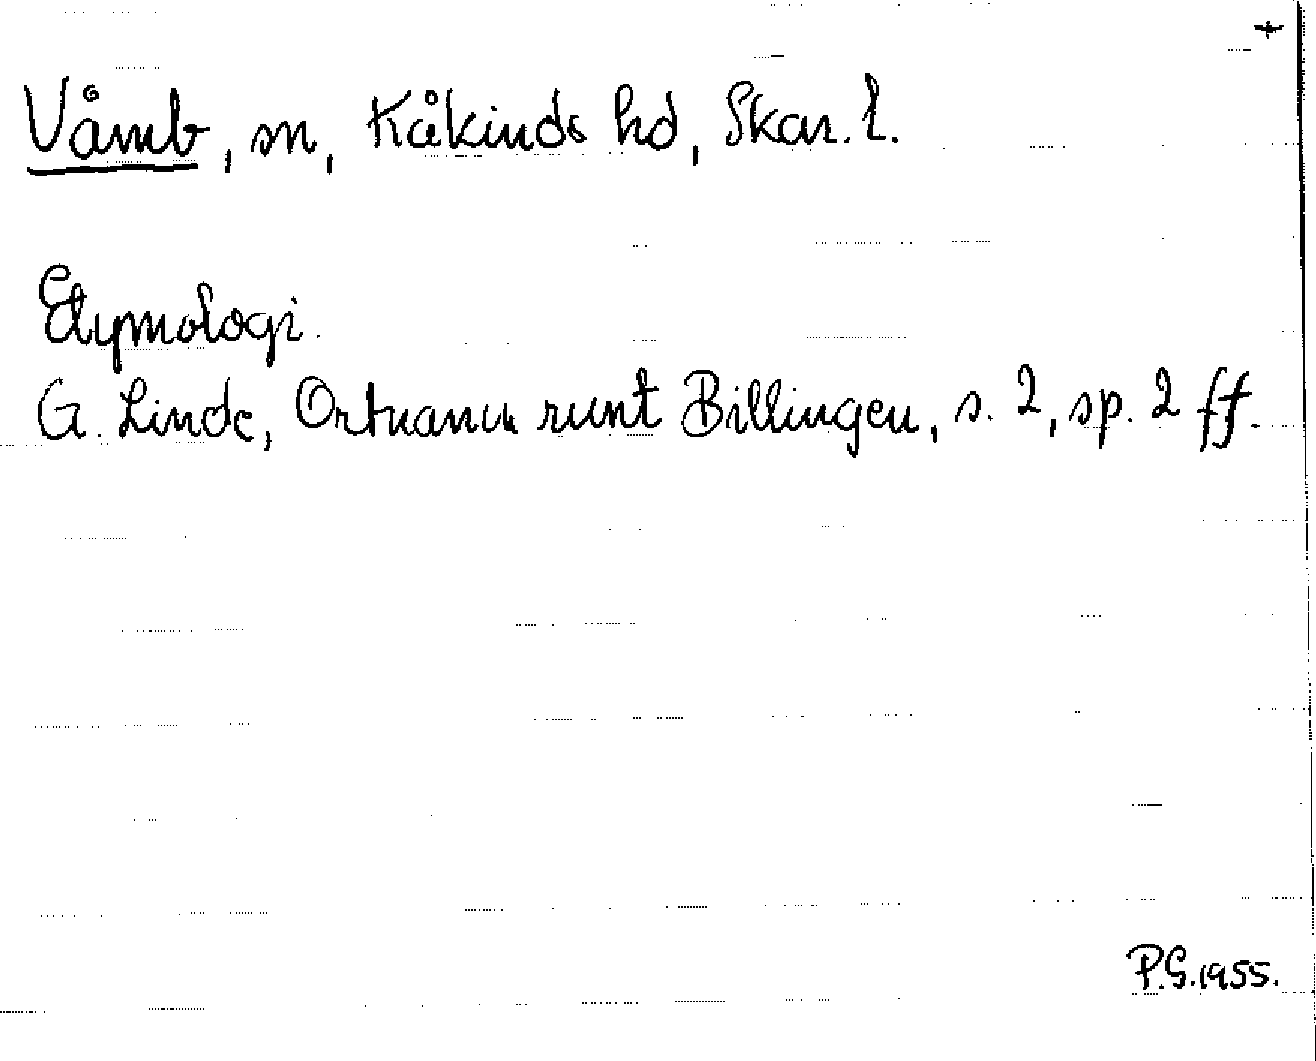 +
Våmb, sn, Kåkinds hd, Skar. l.
Etymologi.
G. Linde, Ortnamn runt Billingen, s. 2, sp. 2 ff.
P.G. 1955.